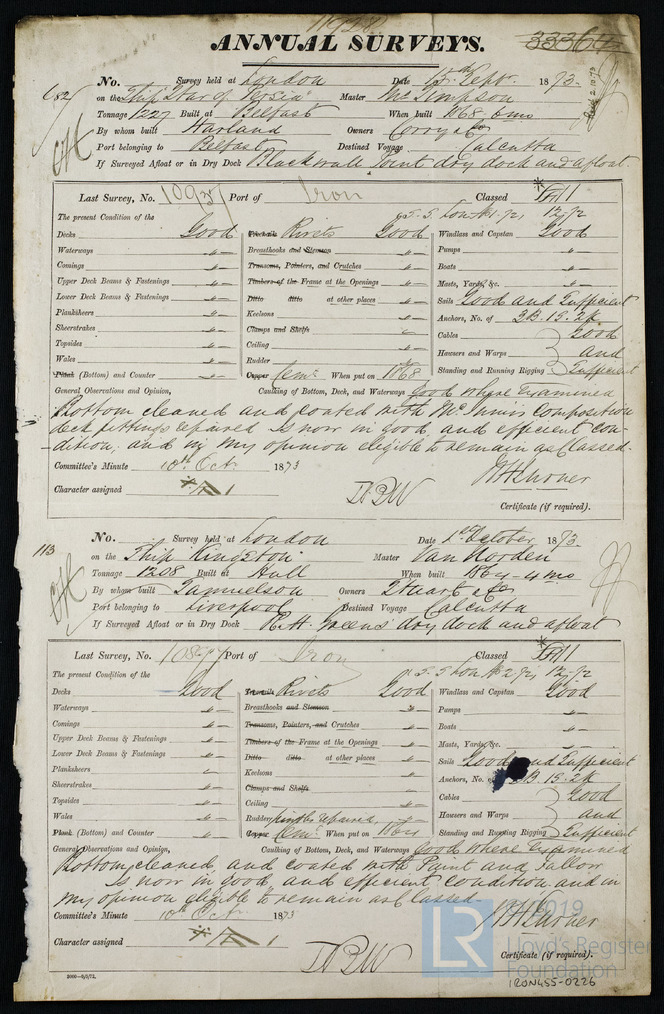 ANNUAL SURVEYS.
33364
182
No. Survey held at London Date 15th Septr. 1873
on the Ship "Star of Persia" Master Mc Simpson
Tonnage 1227 Built at Belfast When built 1868 6mo
By whom built Harland Owners Corry & Co
Port belonging to Belfast Destined Voyage Calcutta
If Surveyed Afloat or in Dry Dock Blackwall Point dry dock and afloat
Last Survey, No. 10937 Port of Iron Classed
The present Condition of the S.S. Lon No 1-72 12-72
Decks Good Treenails Rivets Good Windlass and Capstan Good
Waterways " Breasthooks and Stemson " Pumps "
Comings " Transoms, Pointers, and Crutches " Boats "
Upper Deck Beams & Fastenings " Timbers of the Frame at the Openings " Masts, Yards, &c. "
Lower Deck Beams & Fastenings " Ditto ditto at other places " Sails Good and Sufficient
Planksheers " Keelsons " Anchors, No. of 3B. 1S. 2K
Sheerstrakes " Clamps and Shelfs Cables Good
Topsides " Ceiling " Hawsers and Warps and
Wales " Rudder " Standing and Running Rigging Sufficient
Plank (Bottom) and Counter " Copper Cemt When put on 1868
General Observations and Opinion, Caulking of Bottom, Deck, and Waterways Good where Examined
Bottom cleaned and coated with McInnis Composition
deck fittings repaired Is now in good and efficient con-
-dition, and in my opinion eligible to remain as Classed.
Committee's Minute 10th Oct. 1873
Character assigned
Certificate (if required).
113
No. Survey held at London Date 1st October 1873
on the Ship "Kingston" Master Van Norden
Tonnage 1208 Built at Hull When built 1864-4 mo
By whom built Samuelson Owners Stuart & Co
Port belonging to Liverpool Destined Voyage Calcutta
If Surveyed Afloat or in Dry Dock R. H. Greens' dry dock and afloat
Last Survey, No. 10877 Port of Iron Classed
The present Condition of the S.S Lon No 2-72 12-72
Decks Good Treenails Rivets Good Windlass and Capstan Good
Waterways " Breasthooks and Stemson " Pumps "
Comings " Transoms, Pointers, and Crutches " Boats "
Upper Deck Beams & Fastenings " Timbers of the Frame at the Openings " Masts, Yards, &c. "
Lower Deck Beams & Fastenings " Ditto ditto at other places " Sails Good and Sufficient
Planksheers Keelsons " Anchors, No. of 3B. 1S. 2K
Sheerstrakes " Clamps and Shelfs Cables Good
Topsides " Ceiling " Hawsers and Warps and
Wales " Rudder repaired Standing and Running Rigging Sufficient
Plank (Bottom) and Counter " Copper Cemt When put on 1864
General Observations and Opinion, Caulking of Bottom, Deck, and Waterways Good where Examined
Bottom cleaned, and coated with Paint and Tallow
Is now in good and efficient condition and in
my opinion eligible to remain as Classed.
Committee's Minute 10th Oct. 1873
Character assigned
Certificate (if required).
2000—9/5/72.
LR
©2019
Lloyd's Register
Foundation
IRON455-0226